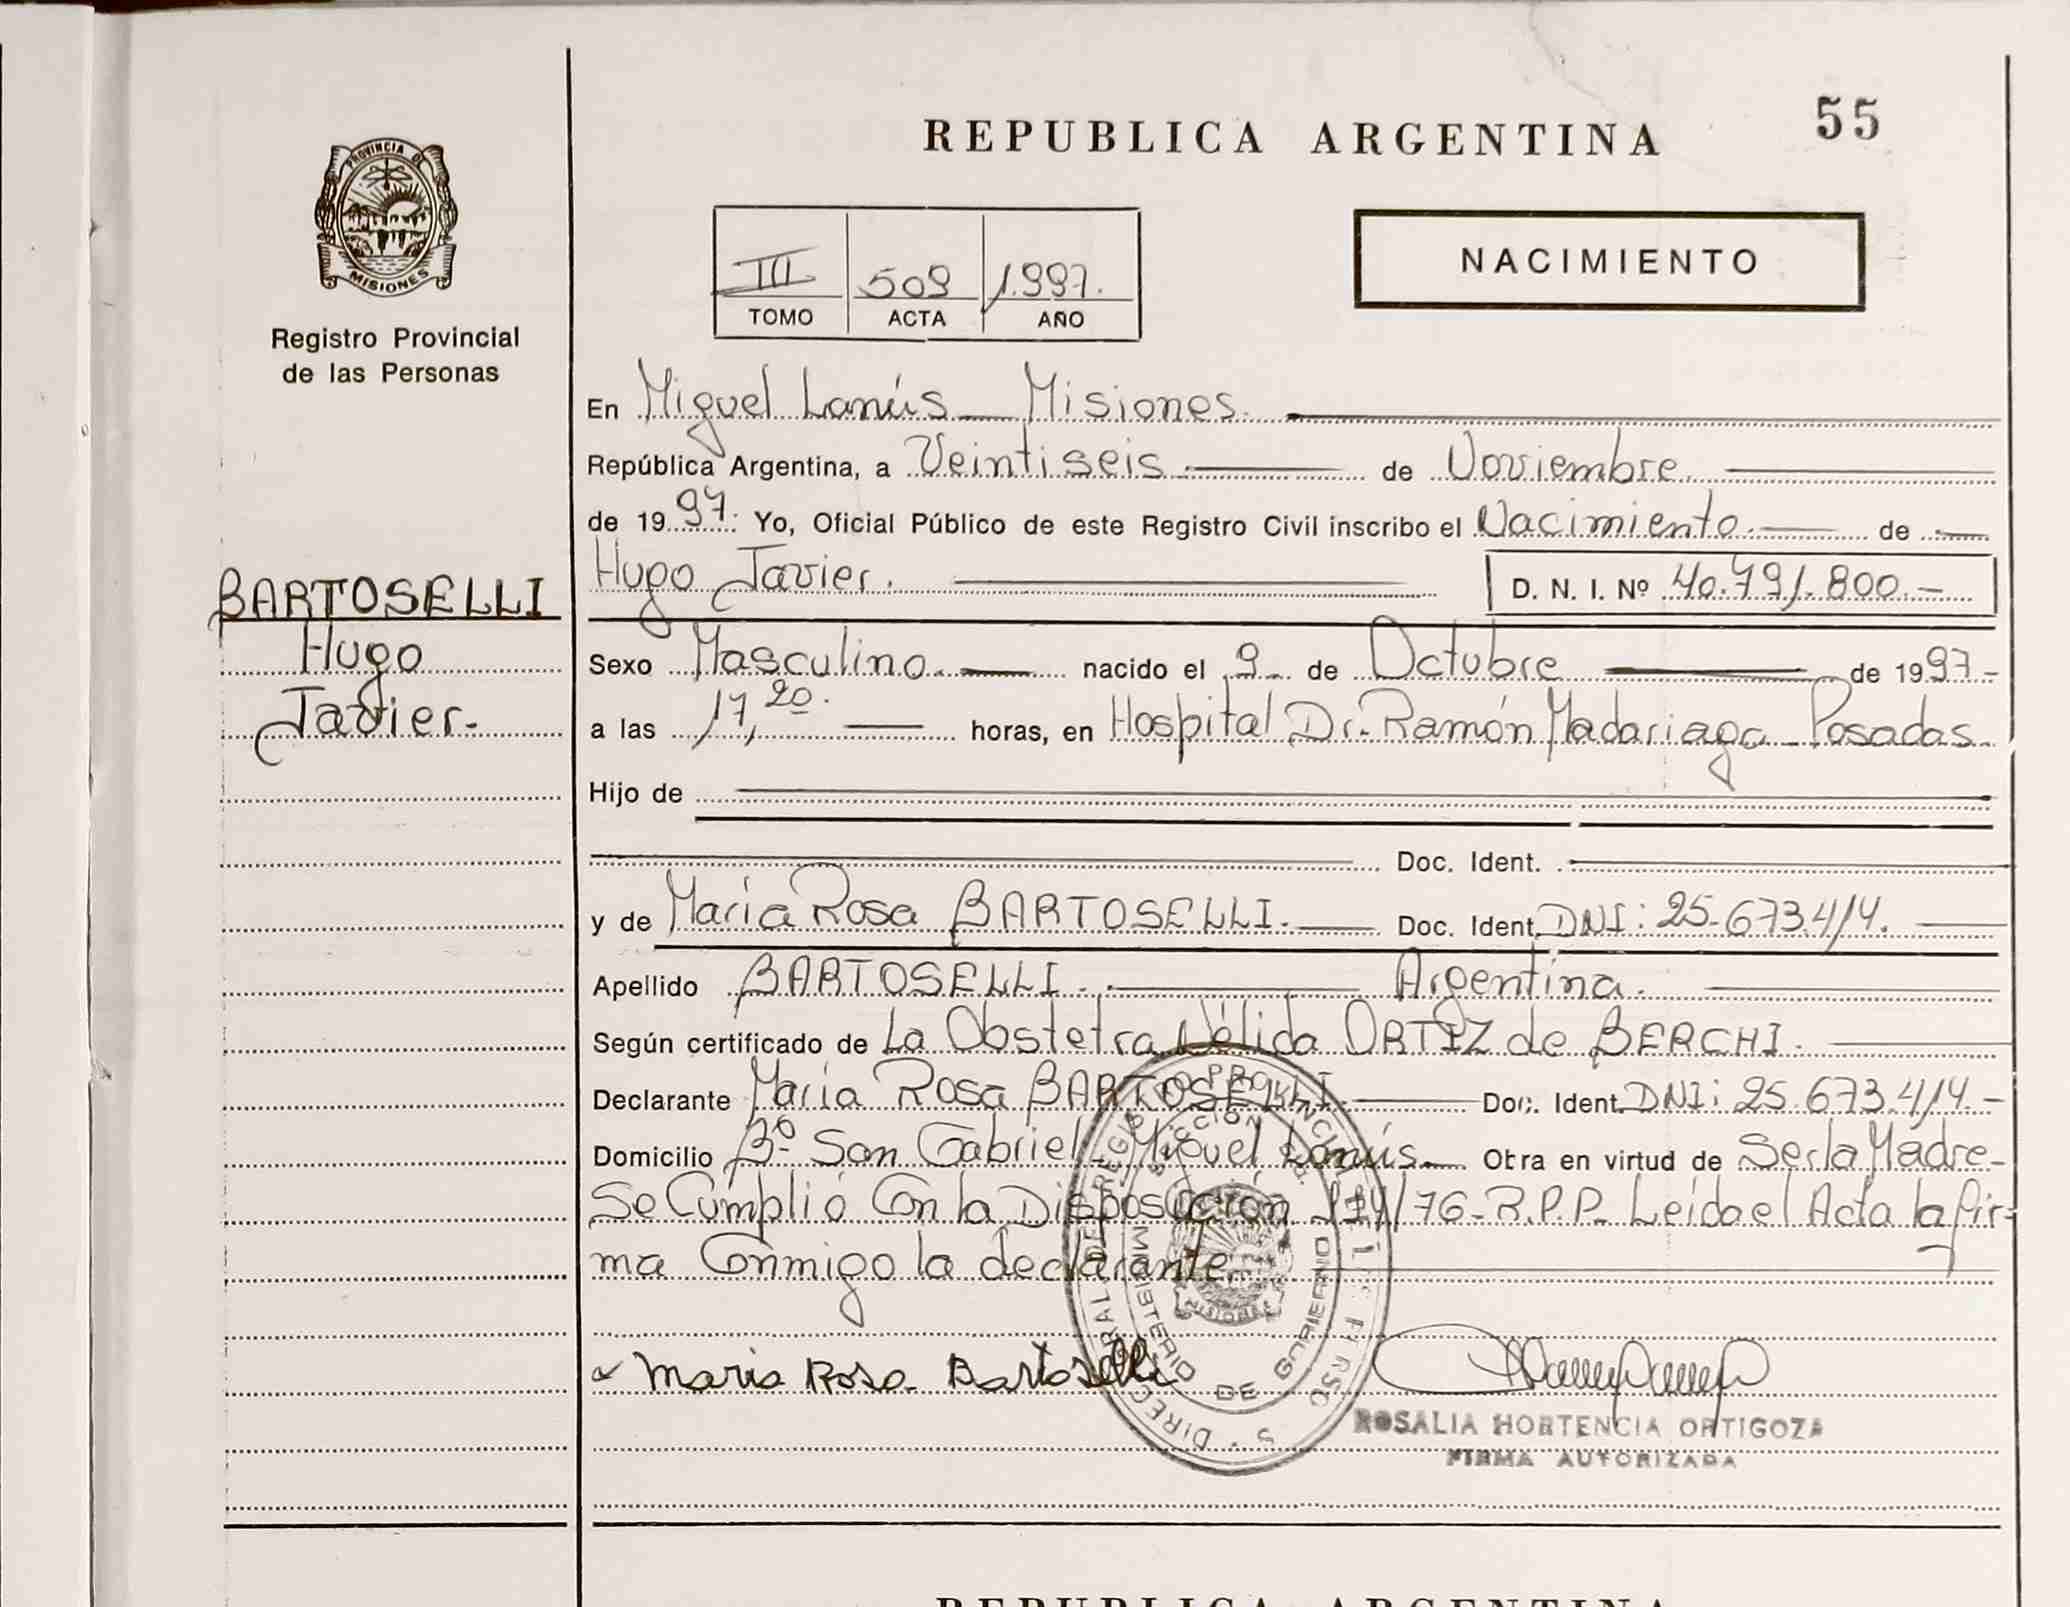 55
REPUBLICA ARGENTINA
PROVINCIA DE
MISIONES
Registro Provincial
de las Personas
NACIMIENTO
III 509 1.997.
TOMO ACTA AÑO
En Miguel Lanús — Misiones.
República Argentina, a Veintiseis de Noviembre
de 1997. Yo, Oficial Público de este Registro Civil inscribo el Nacimiento de
BARTOSELLI
Hugo
Javier.-
Hugo Javier. D. N. I. Nº 40.791.800.-
Sexo Masculino. nacido el 9 de Octubre de 1997-
a las 17,20. horas, en Hospital Dr. Ramón Madariaga - Posadas.
Hijo de
Doc. Ident.
y de María Rosa BARTOSELLI. Doc. Ident. DNI: 25.673.414.
Apellido BARTOSELLI. Argentina.
Según certificado de La Obstetra Nélida ORTIZ de BERCHI.
Declarante María Rosa BARTOSELLI. Doc. Ident. DNI: 25.673.414.-
Domicilio Bº San Gabriel - Miguel Lanús. Obra en virtud de Ser la Madre-
Se Cumplió Con la Disposición /76-R.P.P. Leída el Acta la fir-
ma Conmigo la declarante
Maria Rosa Bartoselli
MINISTERIO DE GOBIERNO
MISIONES
ROSALIA HORTENCIA ORTIGOZA
FIRMA AUTORIZADA
REPUBLICA ARGENTINA